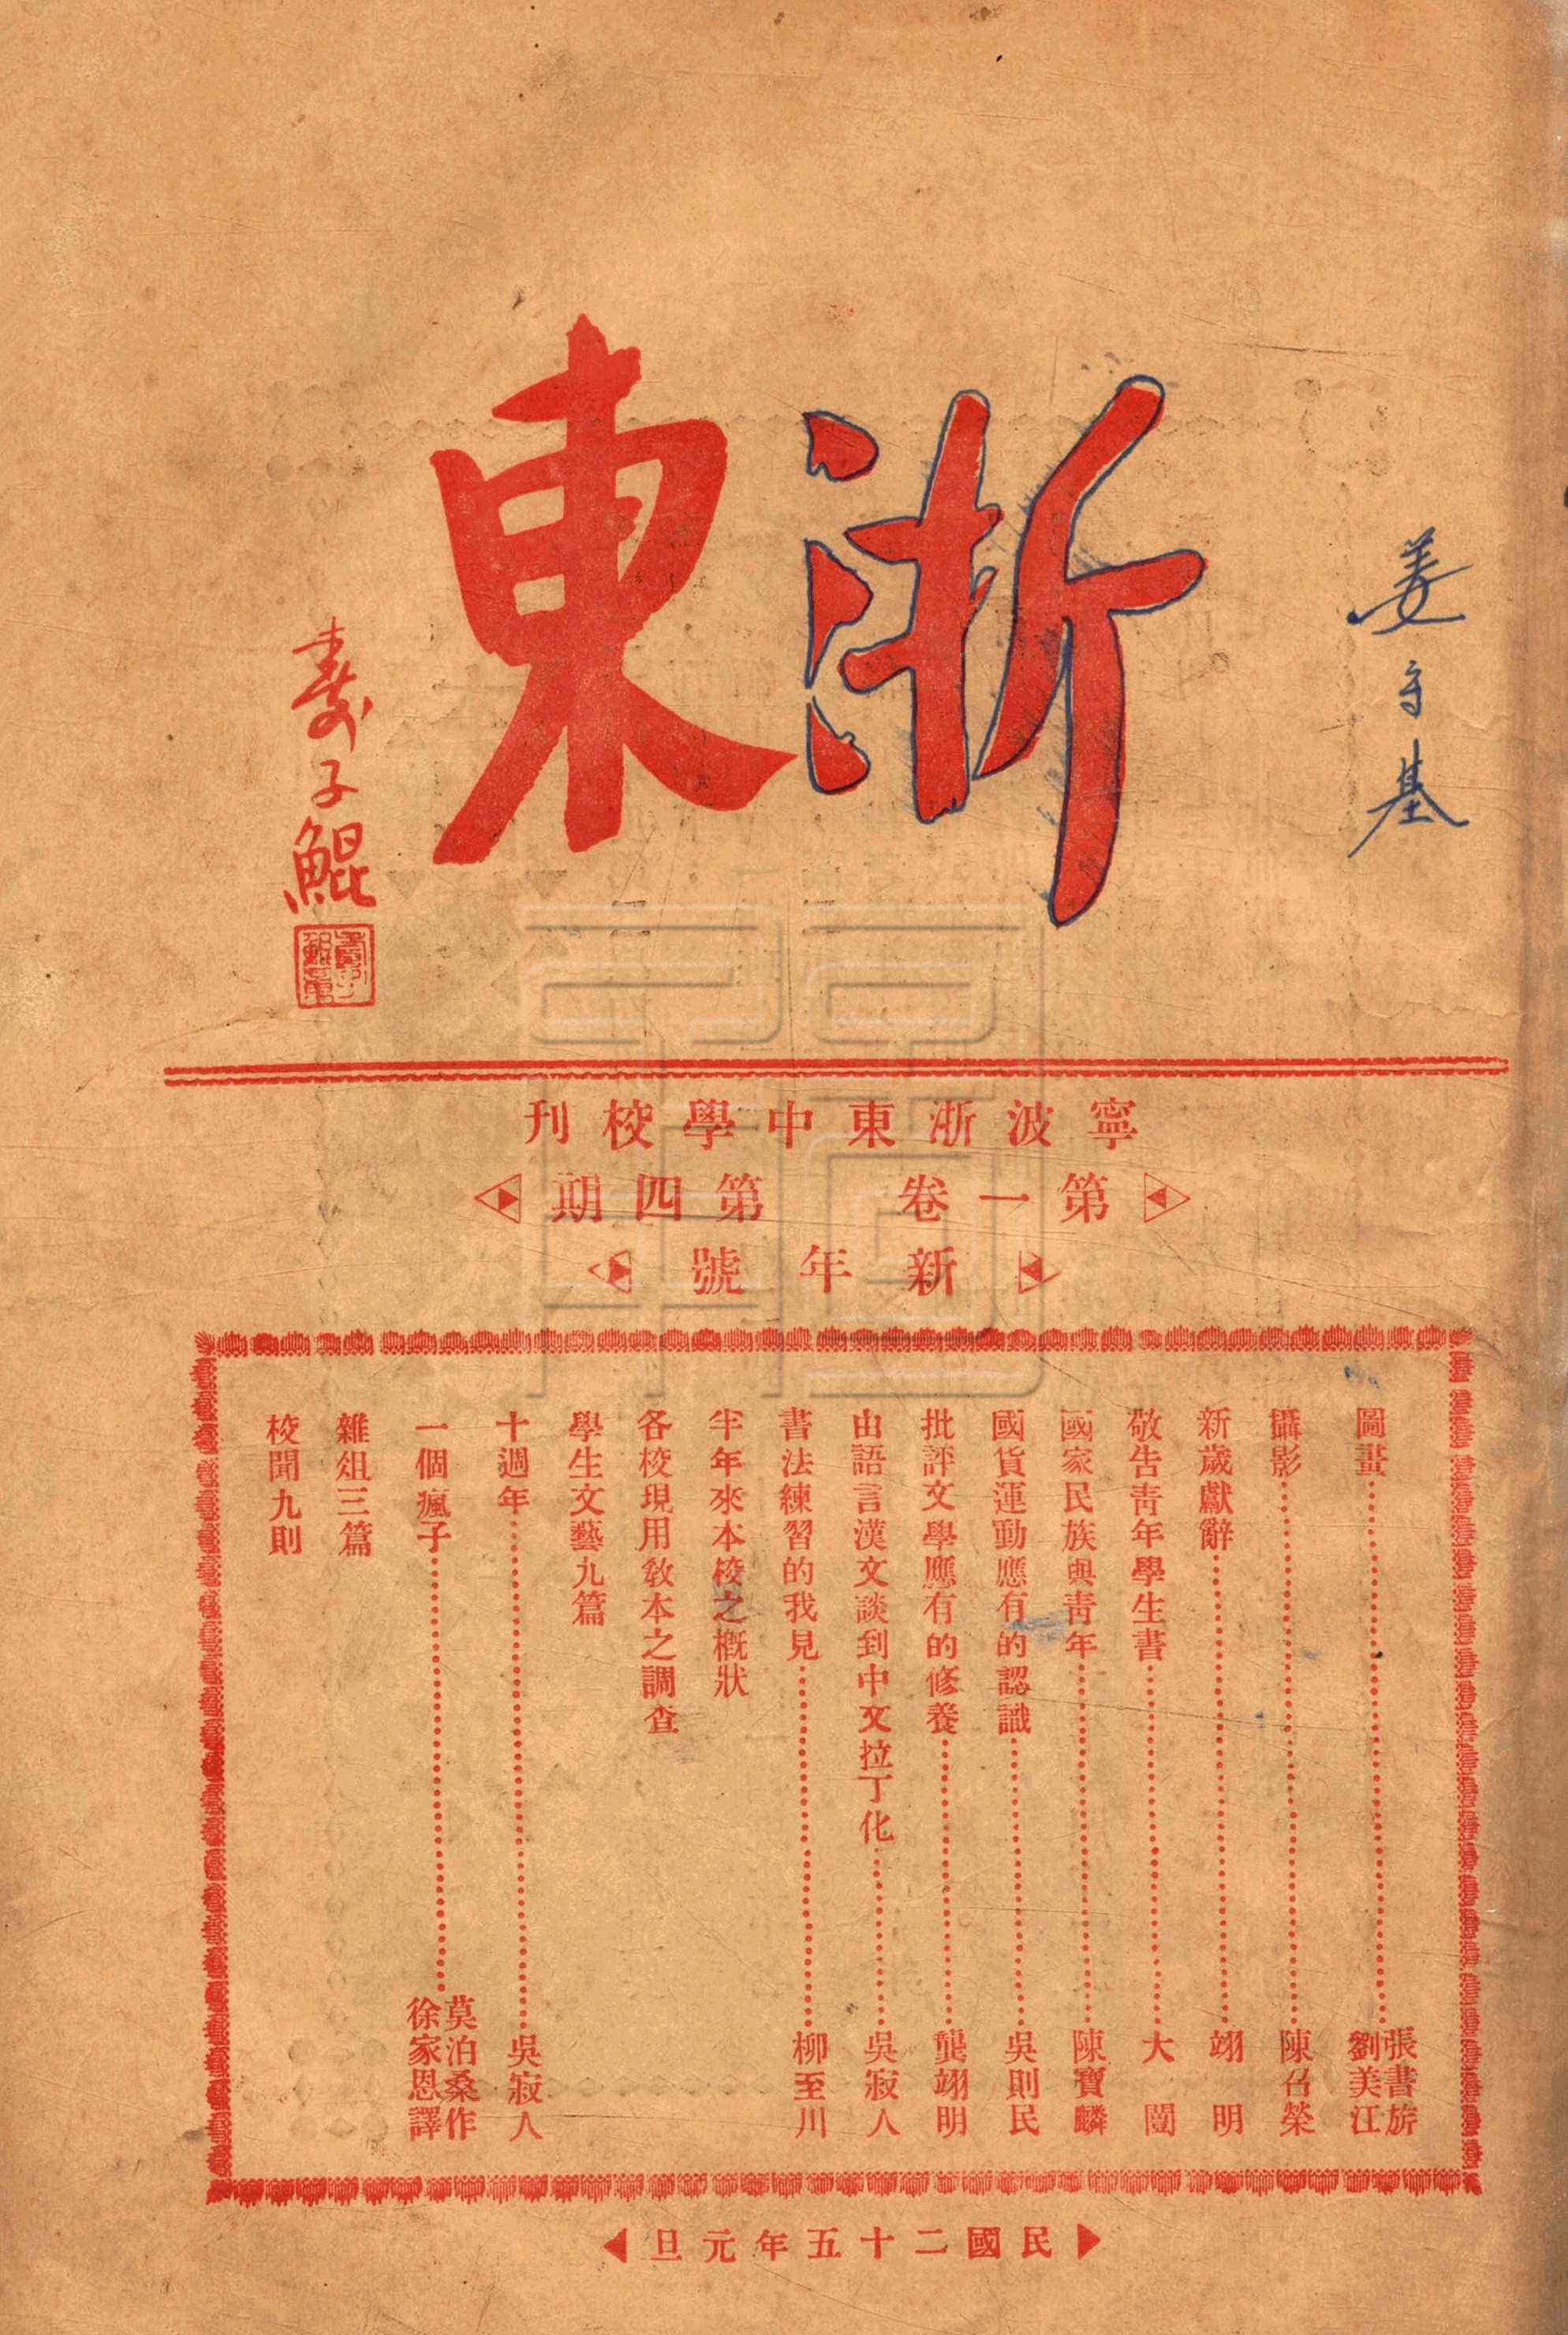 浙東
姜守基
壽子鯤
寧波浙東中學校刊
第一卷 第四期
新年號
圖畫……張書旂 劉美江
攝影……陳召榮
新歲獻辭……翊明
敬告靑年學生書……大闓
國家民族與靑年……陳寶麟
國貨運動應有的認識……吳則民
批評文學應有的修養……龔翊明
由語言漢文談到中文拉丁化……吳寂人
書法練習的我見……柳至川
半年來本校之槪狀
各校現用敎本之調查
學生文藝九篇
十週年……吳寂人
一個瘋子……莫泊桑作 徐家恩譯
雜俎三篇
校聞九則
民國二十五年元旦